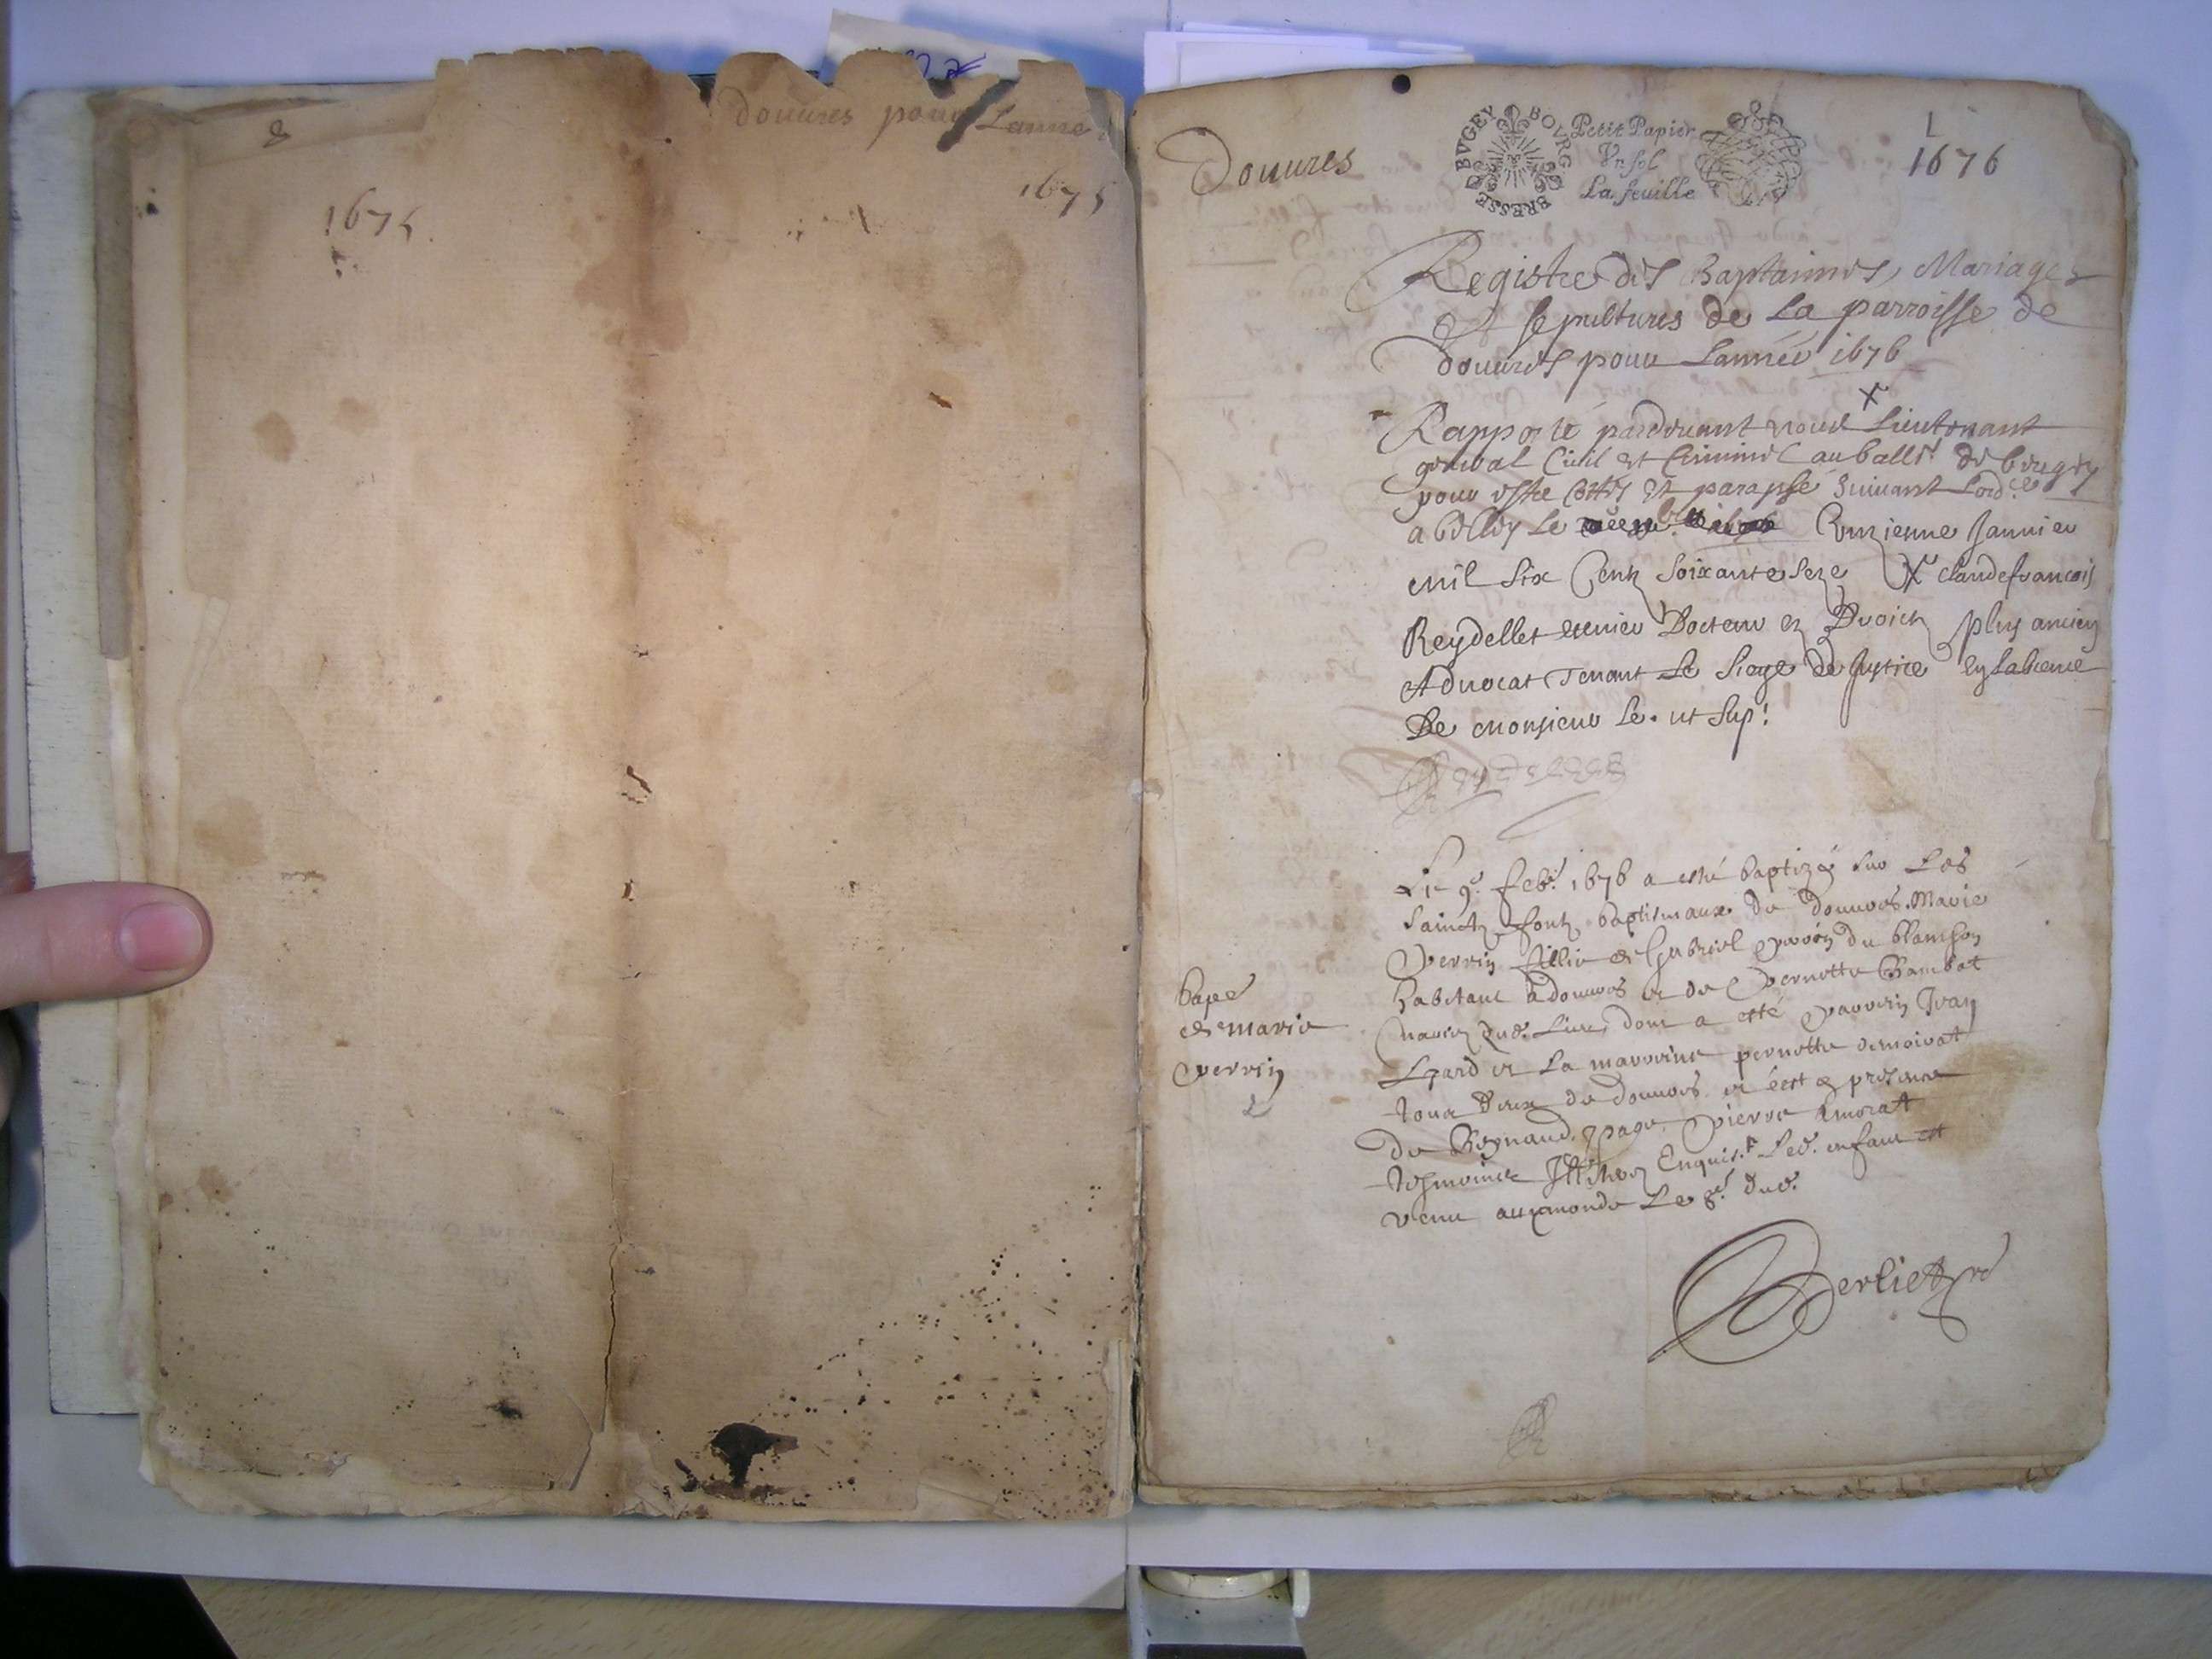 douures pour Lannée
1675
1675
Douures
BVGEY BOVRG BRESSE
Petit Papier
Vn sol
La feuille
L
1676
Registre des Baptaimes, Mariages
Et sepultures de La parroisse de
douures pour Lannée 1676
Rapporté pardeuant nous X Lieutenant
general Ciuil et Criminel au balle. de beugey
pour estre cotté et paraphé suiuant Lord.ce
a belley Le Onzienne Januier
mil six Centz soixante seze X claude francois
Reydellet Docteur ez Droictz plus ancien
Aduocat Tenant Le Siege de Justice en labsence
De monsieur Le. ut sup!
Reydellet
Le 9e. feb. 1676 a esté baptizée sur Les
Sainctz fontz baptismaux de douures Marie
perrin fillie de Gabriel perrin du
habitant a douures et de pernette
dont a esté parrein Jean
et La marreine pernette
tous deux de douures et cest en presence
de Pierre
tesmoins Enquis. Led. enfant est
venu au monde Le 8e. dud.
bapt
de marie
perrin
Berliet